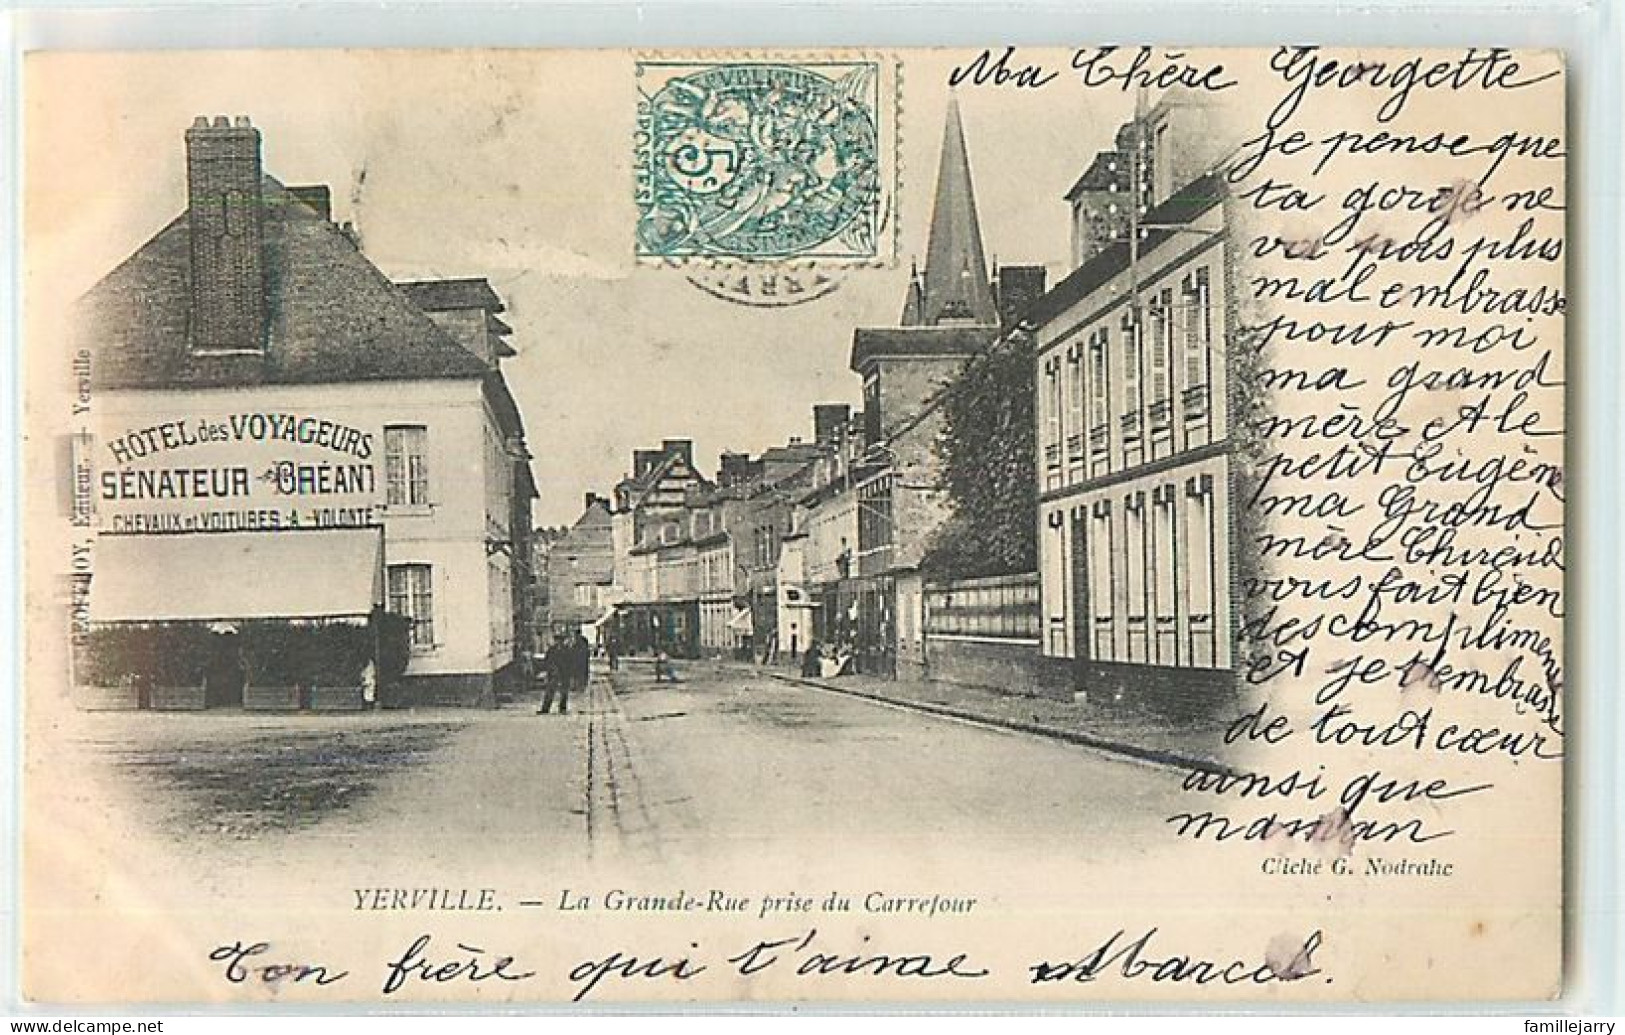 Ma Chère Georgette
je pense que
ta gorge ne
va pas plus
mal embrasse
pour moi
ma grand
mère et le
petit Eugène
ma Grand
mère
vous fait bien
des compliments
et je t'embrasse
de tout cœur
ainsi que
maman
5c
HÔTEL des VOYAGEURS
SÉNATEUR - GRÉANT
CHEVAUX et VOITURES A VOLONTÉ
GEOFFROY, Éditeur. - Yerville
Cliché G. Nodrahc
YERVILLE. — La Grande-Rue prise du Carrefour
Ton frère qui t'aime Marcel.
delcampe.net
famillejarry